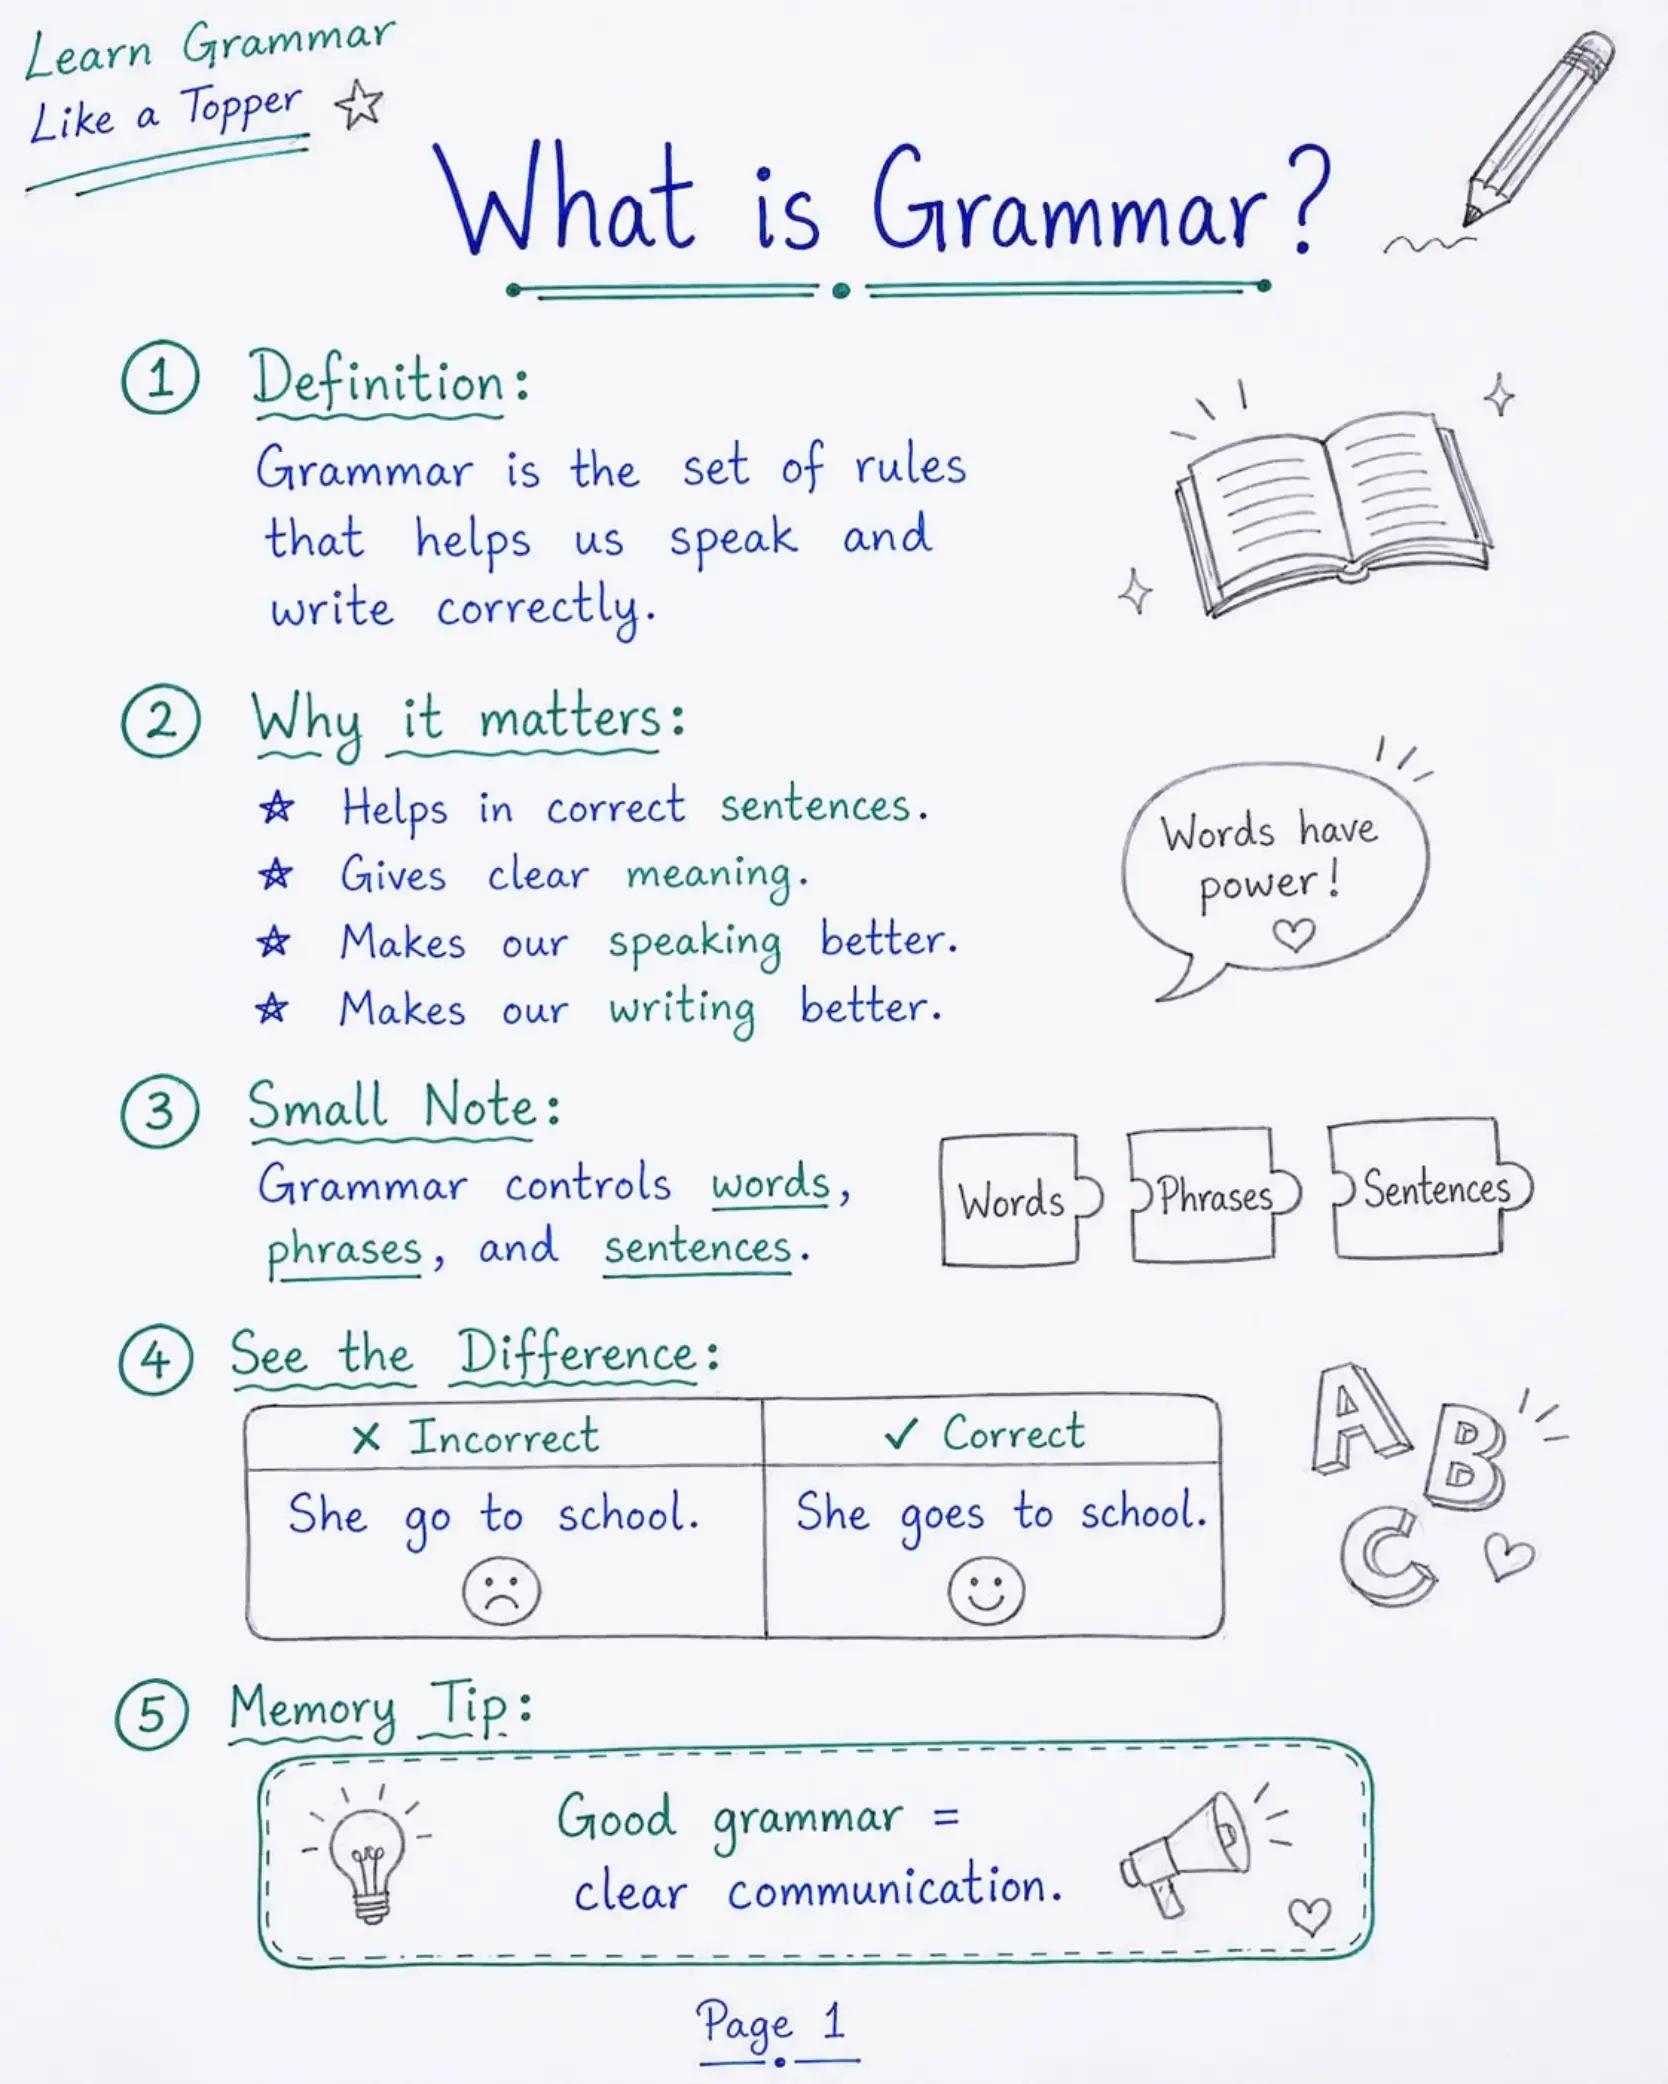 Learn Grammar
Like a Topper
What is Grammar?
1 Definition:
Grammar is the set of rules
that helps us speak and
write correctly.
2 Why it matters:
Helps in correct sentences.
Gives clear meaning.
Makes our speaking better.
Makes our writing better.
Words have
power!
3 Small Note:
Grammar controls words,
phrases, and sentences.
Words Phrases Sentences
4 See the Difference:
✗ Incorrect ✓ Correct
She go to school. She goes to school.
A B
C
5 Memory Tip:
Good grammar =
clear communication.
Page 1